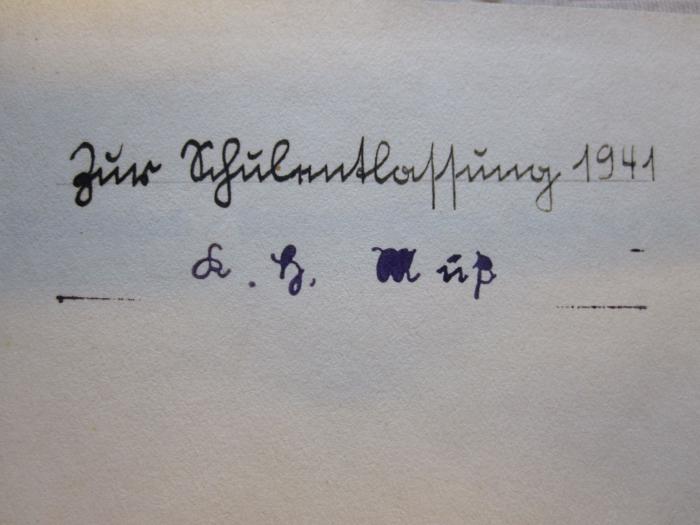 Zur Schulentlassung 1941
K. H. Muß